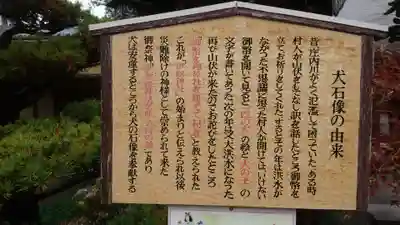 犬石像の由来
昔庄内川がよく氾濫して困っていた ある時
村人が山伏に訳を話したところ御幣を
立てお祈りをしてくれた すると其の年は洪水が
なかった 不思議に思った村人が開けてはいけない
御幣を開いて見ると の絵と の
文字が書いてあった 次の年は又大洪水になった
再び山伏が来たのでお詫びをしたところ
と教えられた
これが の始まりと伝えられ以後
災難除けの神様として崇められて来た
御祭神 であり
犬は安産するところから犬の石像を奉献する